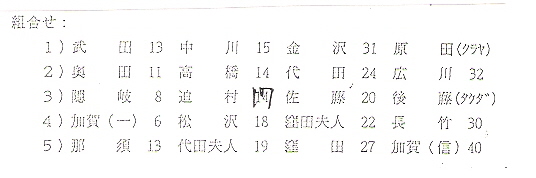 組合せ:
1) 武田 13 中川 15 金沢 31 原田(クラヤ)
2) 奥田 11 高橋 14 代田 24 広川 32
3) 隠岐 8 迫村 佐藤 20 後藤(タクダ)
4) 加賀(一) 6 松沢 18 窪田夫人 22 長竹 30
5) 那須 13 代田夫人 19 窪田 27 加賀(信) 40